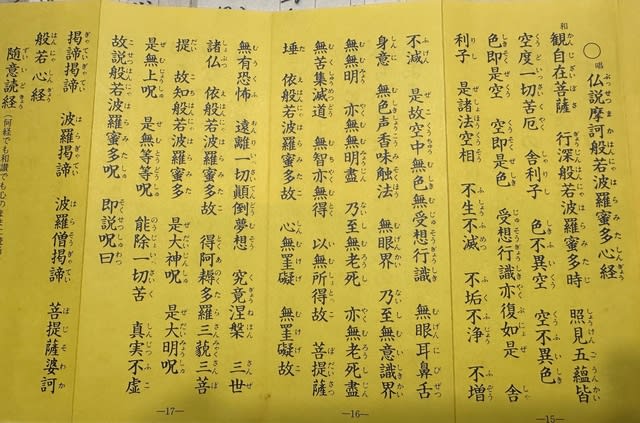 ○唱 仏説摩訶般若波羅蜜多心経
和 観自在菩薩 行深般若波羅蜜多時 照見五蘊皆
空度一切苦厄 舎利子 色不異空 空不異色
色即是空 空即是色 受想行識亦復如是 舎
利子 是諸法空相 不生不滅 不垢不浄 不増
—15—
不滅 是故空中無色無受想行識 無眼耳鼻舌
身意 無色声香味触法 無眼界 乃至無意識界
無無明 亦無無明盡 乃至無老死 亦無老死盡
無苦集滅道 無智亦無得 以無所得故 菩提薩
埵 依般若波羅蜜多故 心無罣礙 無罣礙故
—16—
無有恐怖 遠離一切顛倒夢想 究竟涅槃 三世
諸仏 依般若波羅蜜多故 得阿耨多羅三藐三菩
提 故知般若波羅蜜多 是大神呪 是大明呪
是無上呪 是無等等呪 能除一切苦 真実不虚
故説般若波羅蜜多呪 即説呪曰
—17—
掲諦掲諦 波羅掲諦 波羅僧掲諦 菩提薩婆訶
般若心経
随意読経 (何経でも和讃でも心のまま